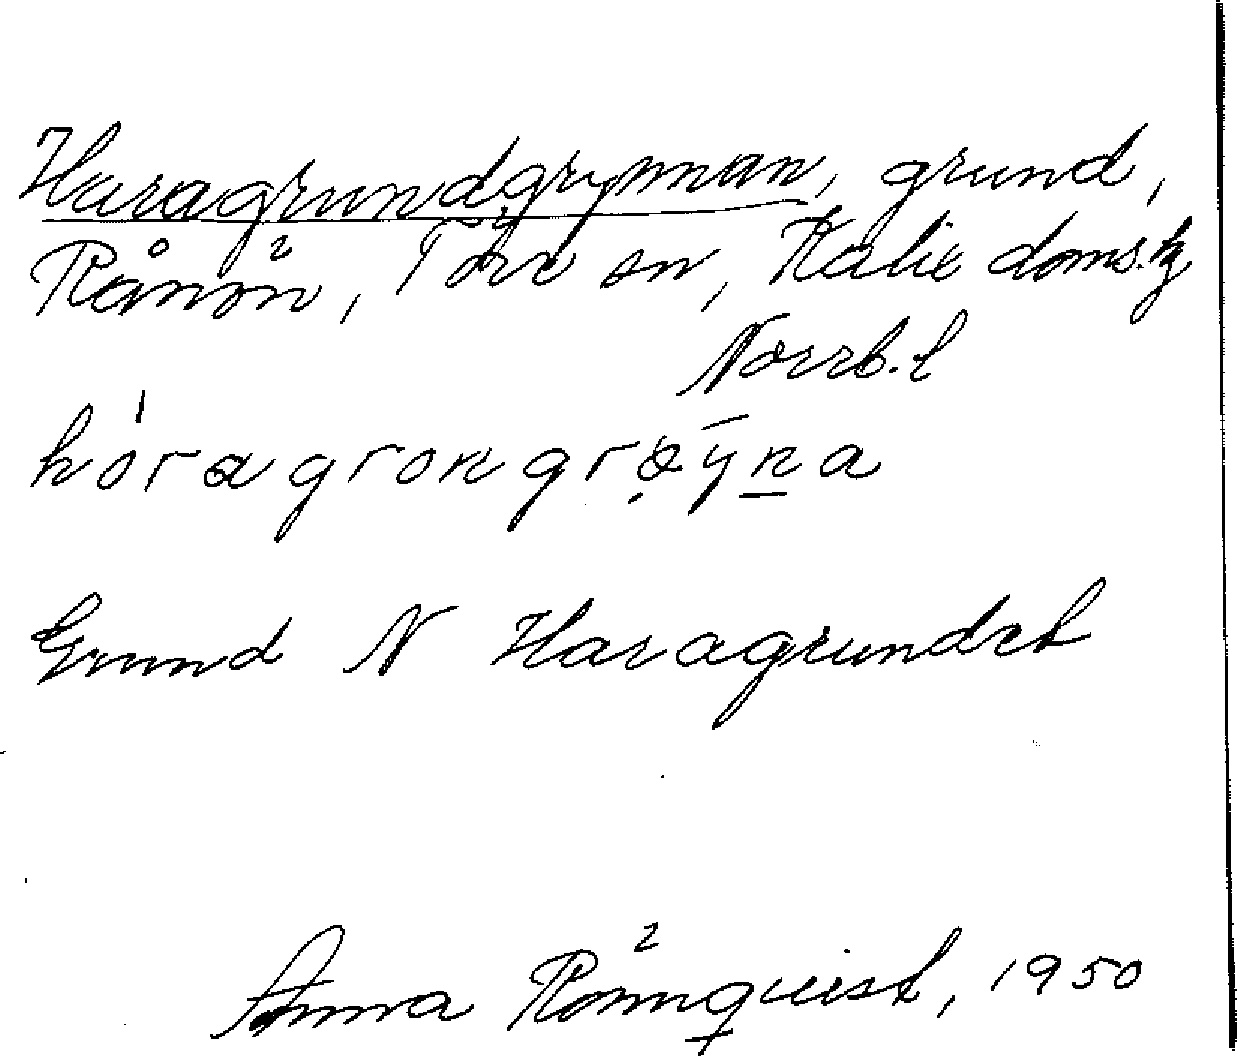 Haragrundgrynnan, grund,
Rånön, Töre sn, Kalix doms.h
Norrb.l
hóragrongrøýna
Grund N Haragrundet
Anna Rönnqvist, 1950